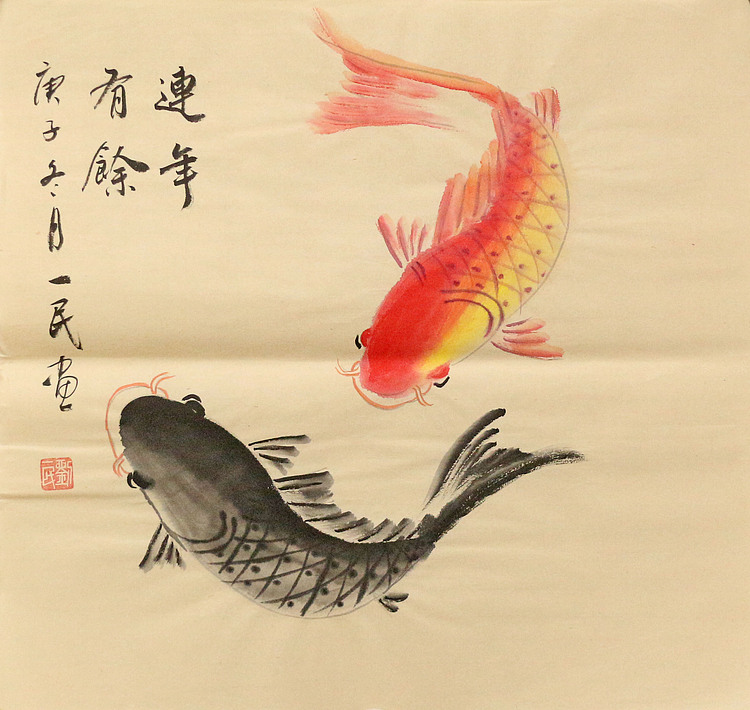 連年
有餘
庚子冬月一民畫
劉